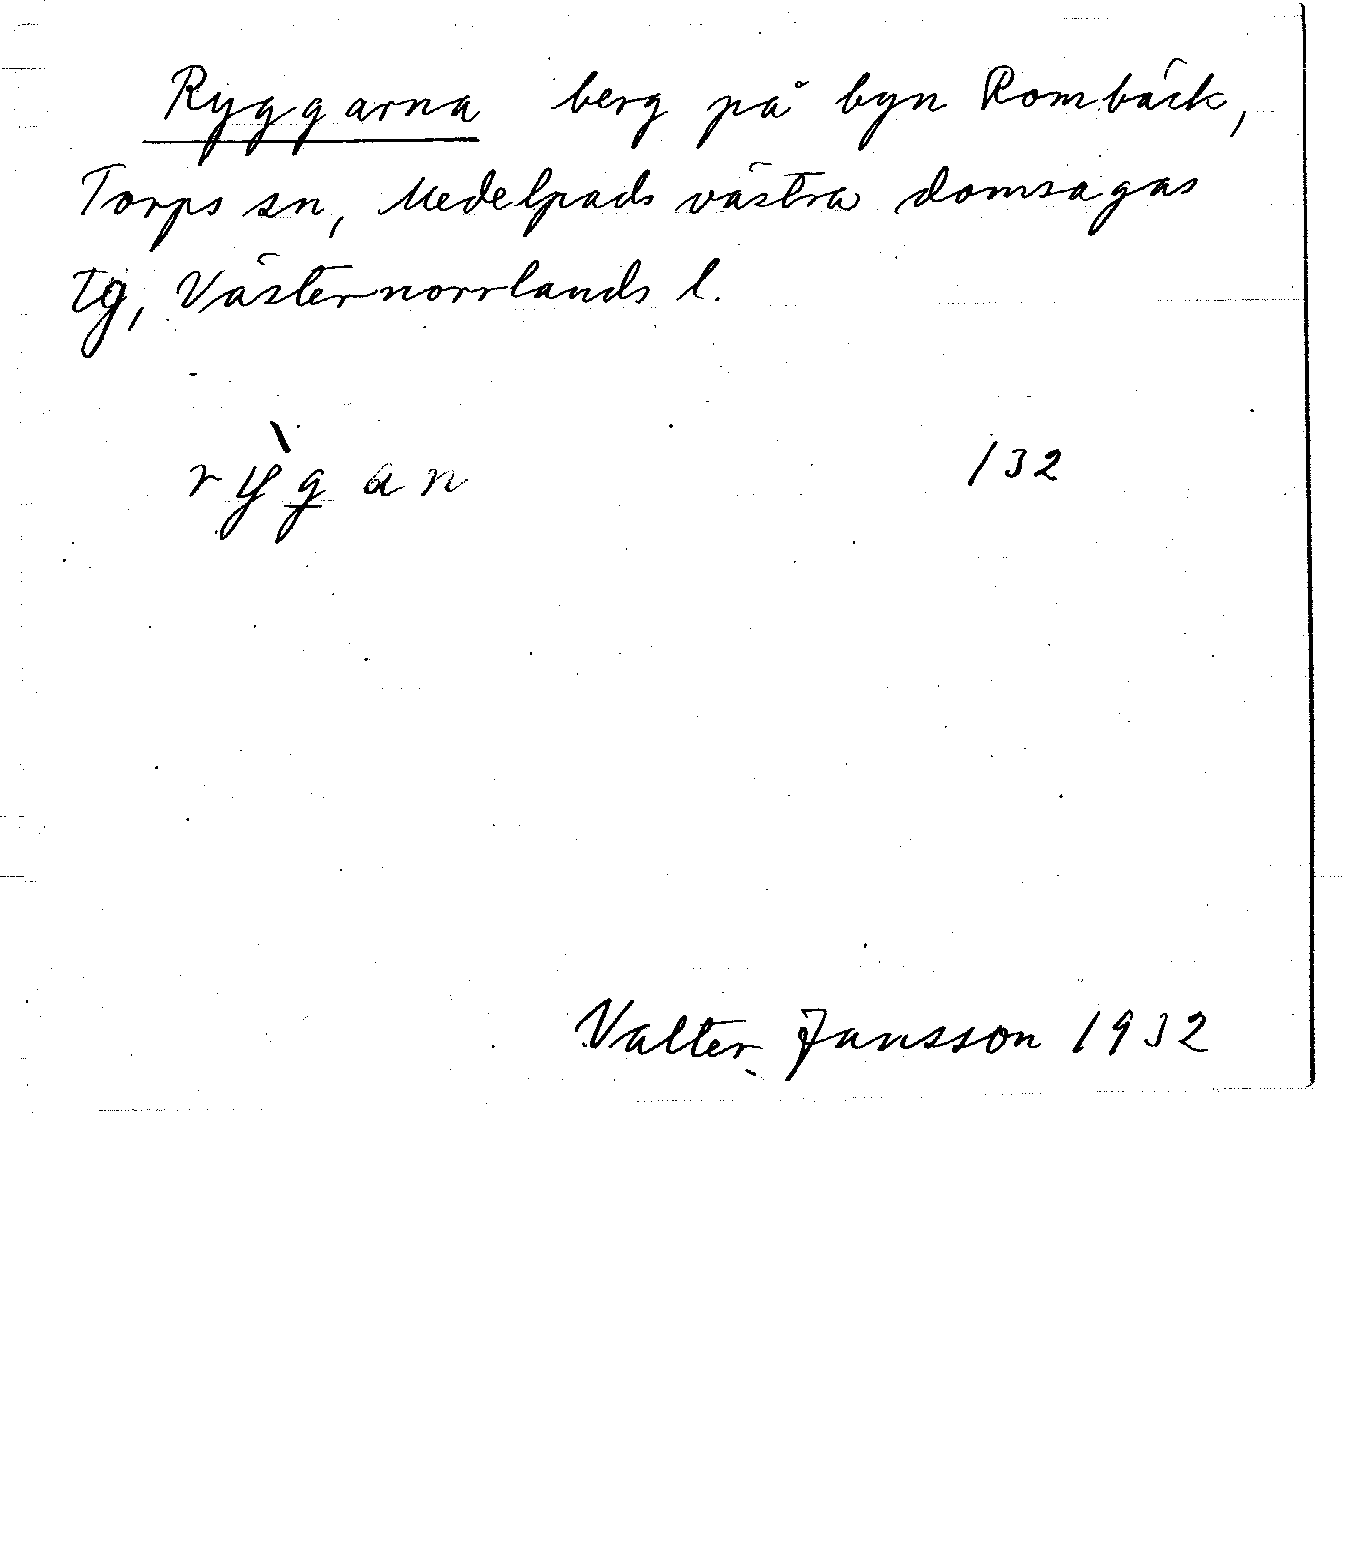 Ryggarna berg på byn Rombäck,
Torps sn, Medelpads västra domsagas
tg, Västernorrlands l.
rỳgan 132
Valter Jansson 1932